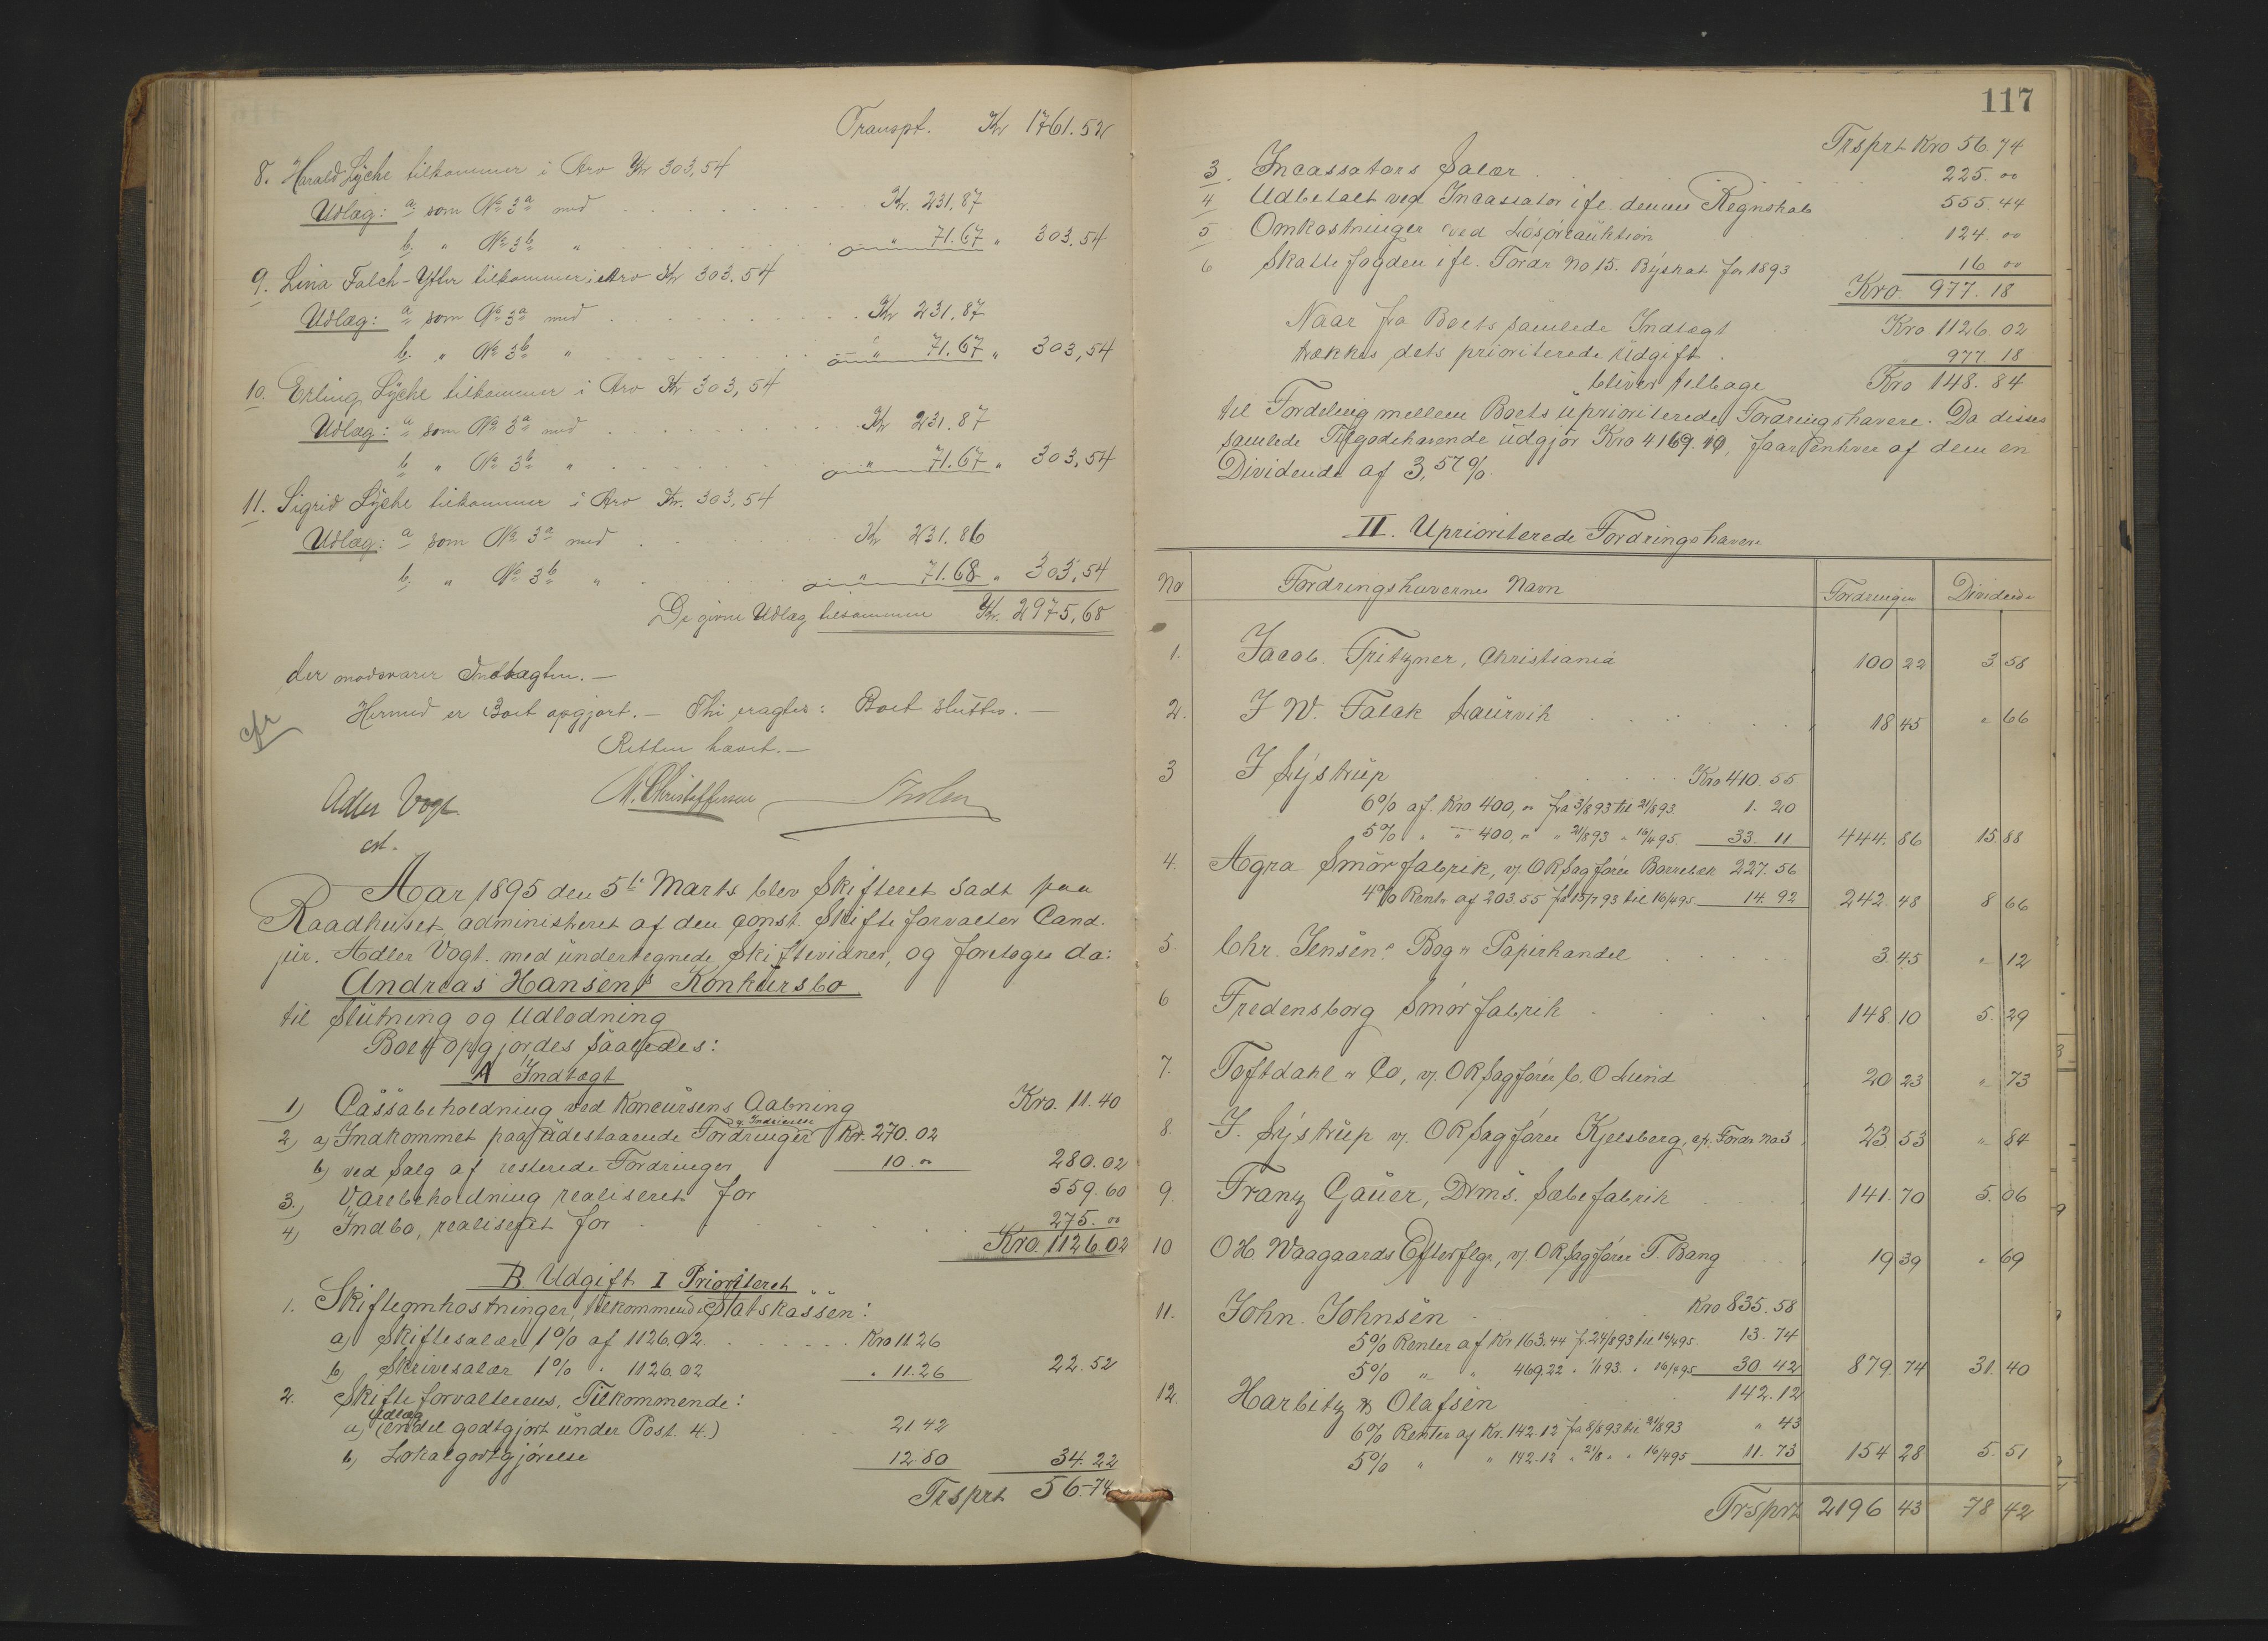 Transpt. Kr 1761.52
8. Harald Lyche tilkommer i Arv Kr 303,54
Udlæg: a som No 3a med Kr. 231,87
b. " No 3b " " 71.67 " 303,54
9. Lina Falch-Ytter tilkommer i Arv Kr 303.54
Udlæg: a som No 3a med Kr 231,87
b. " No 3b " " 71.67 " 303,54
10. Erling Lyche tilkommer i Arv Kr 303,54
Udlæg: a som No 3a med Kr 231.87
b " No 3b " " 71.67 " 303,54
11. Sigrid Lyche tilkommer i Arv Kr. 303,54
Udlæg: a som No 3a med Kr 231.86
b. " No 3b " " 71.68 " 303,54
De givne Udlæg tilsammen Kr. 2975,68
der modsvarer Indtægten. —
Hermed er Boet opgjort. — Thi eragtes: Boet sluttes. —
cfr
Retten hævet. —
Adler Vogt M. Christoffersen
cst.
Aar 1895 den 5te Marts blev Skifteret sadt paa
Raadhuset, administreret af den const. Skifteforvalter Cand.
jur. Adler Vogt. med undertegnede Skiftevidner, og foretoges da:
Andreas Hansens Konkursbo
til Slutning og Udlodning
Boet opgjordes saaledes:
A Indtægt
1) Cassabeholdning ved Koncursens Aabning Kro. 11.40
2) a) Indkommet paa udestaaende Fordringer Kr. 270.02
b) ved Salg af resterede Fordringer 10. " 280.02
3.) Varebeholdning realiseret for 559.60
4) Indbo, realiseret for 275. 00
Kro. 1126.02
B. Udgift I Prioriteret
1. Skifteomkostninger, tilkommende Statskassen:
a) Skiftesalær 1% af 1126.02 Kro 11.26
b) Skrivesalær 1% " 1126.02 " 11.26 22.52
2. Skifteforvalterens Tilkommende:
Udlæg
a) (endel godtgjort under Post. 4.) 21 42
b) Lokalgodtgjørelse 12.80 34.22
Trsprt 56.74
117
Trsprt Kro 56.74
3. Incassators Salær 225. 00
4 Udbetalt ved Incassator ifl. dennes Regnskab 555.44
5 Omkostninger ved Løsøreauktion 124. 00
6 Skattefogden ifl. Fordr No 15. Byskat for 1893 16 00
Kro. 977. 18
Naar fra Boets samlede Indtægt Kro 1126. 02
trækkes dets prioriterede Udgift 977. 18
bliver tilbage Kro 148. 84
til Fordeling mellem Boets uprioriterede Fordringshavere. Da disses
samlede Tilgodehavende udgjør Kro 4169.10, faar enhver af dem en
Dividende af 3,57%.
II. Uprioriterede Fordringshavere
No Fordringshavernes Navn Fordringen Dividende
1. Jacob. Fritzner, Christiania 100 22 3 58
2. J W. Falck Laurvik 18 45 " 66
3 J Lystrup Kro 410.55
6% af Kro 400, " fra 3/8 93 til 21/8 93. 1. 20
5% " " 400, " " 21/8 93 " 16/4 95. 33. 11 444. 86 15. 88
4. Agra Smørfabrik, v/ ORSagfører Borrebæk 227.56
4% Rente af 203.55 fra 15/7 93 til 16/4 95 14. 92 242 48 8 66
5. Chr. Jensens Bog & Papirhandel 3 45 " 12
6 Fredensborg Smørfabrik 148. 10 5. 29
7. Toftdahl & Co, v/. ORSagfører C. O Lund 20 23 " 73
8. J. Lystrup v/. ORSagfører Kjelsberg, cfr. Fordr No 3 23 53 " 84
9. Franz Gauer, Drms. Sæbefabrik 141. 70 5. 06
10 OH Waagaards Efterflgr, v/ ORSagfører T. Bang 19 39 " 69
11. John. Johnsen Kro 835.58
5% Renter af Kr 163.44 fr. 24/8 93 til 16/4 95. 13. 74
5% " " 469.22 " 1/1 93. " 16/4 95 30 42 879. 74 31. 40
12. Harbitz & Olafsen 142.12
6% Renter af Kr. 142.12 fra 8/8 93 til 21/8 93 " 43
5% " " 142.12 " 21/8 " " 16/4 95 11. 73 154 28 5. 51
Trsprt 2196 43 78 42